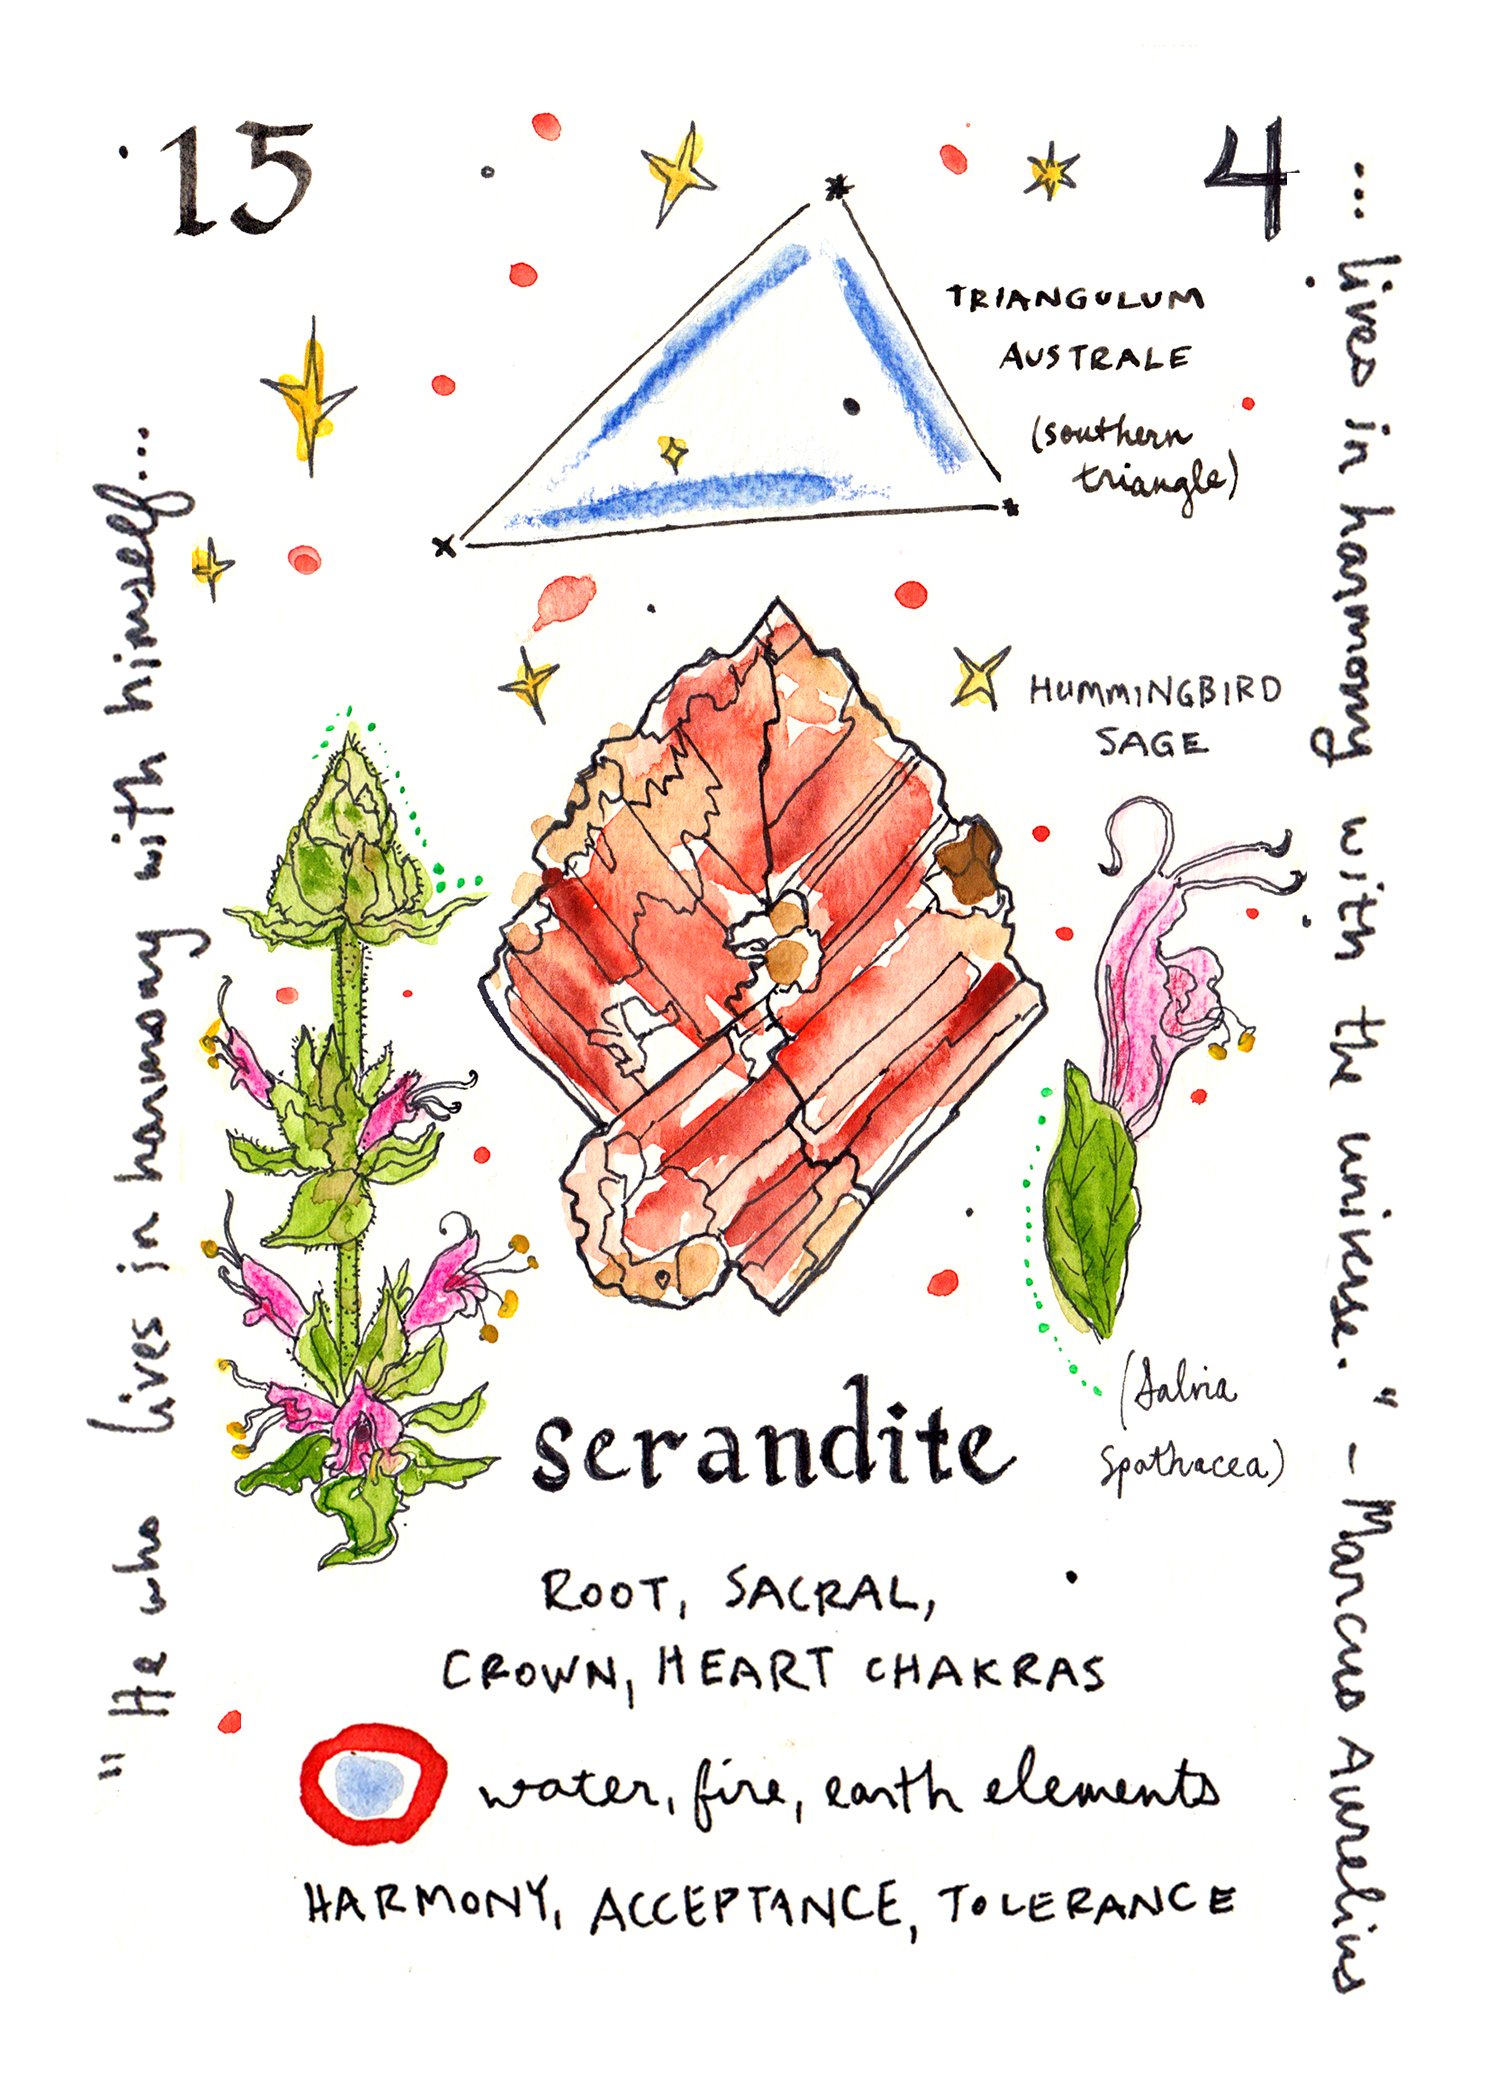 15
4
TRIANGULUM
AUSTRALE
(southern
triangle)
HUMMINGBIRD
SAGE
(Salvia
Spathacea)
serandite
ROOT, SACRAL,
CROWN, HEART CHAKRAS
water, fire, earth elements
HARMONY, ACCEPTANCE, TOLERANCE
"He who lives in harmony with himself...
... lives in harmony with the universe." - Marcus Aurelius